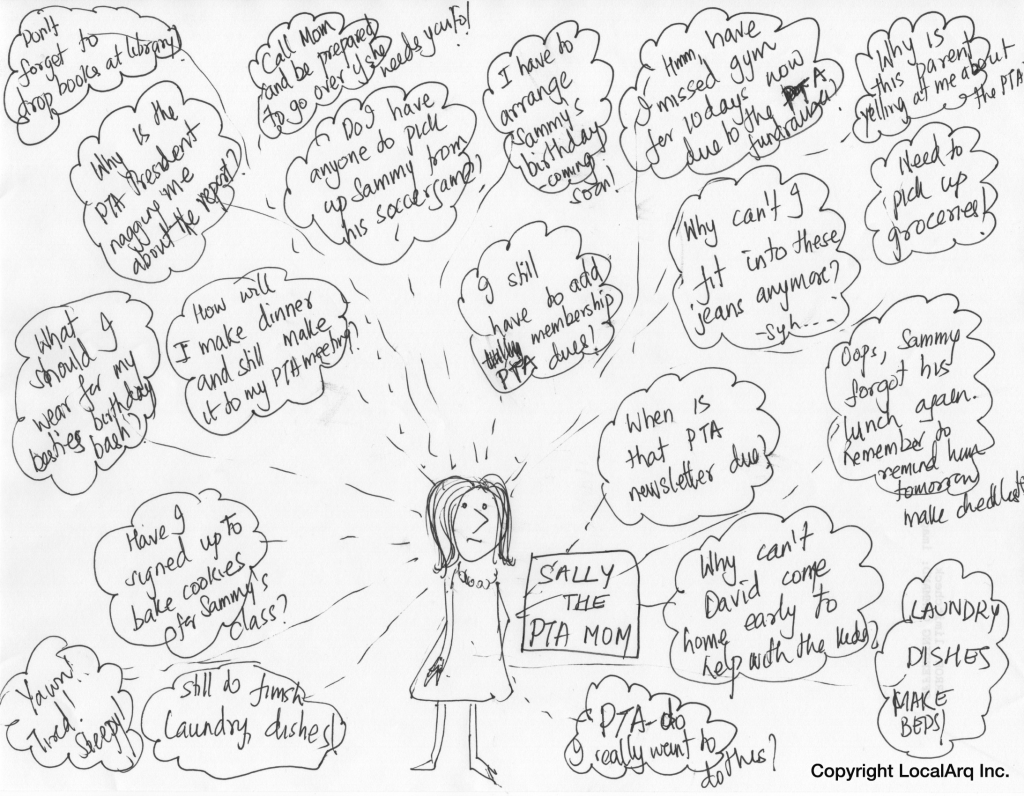 Don't
forget to
drop books at library!
Call Mom
and be prepared
to go over if she
needs you to!
I have to
arrange
Sammy's
birthday
-coming
soon!
Hmm, I have
missed gym
for 10 days now
due to the PTA
Why is
this parent
yelling at me about
the PTA?
Why is the
PTA President
nagging me
about the report?
Do I have
anyone to pick
up Sammy from
his soccer game?
Need to
pick up
groceries!
Why can't I
fit into these
jeans anymore?
-syh....
I still
have to add
membership
PTA dues?
How will
I make dinner
and still make
it to my PTA meeting?
What
should I
wear for my
besties birthday
bash?
Oops, Sammy
forgot his
lunch again.
Remember to
remind him
tomorrow
make checklist
When is
that PTA
newsletter due?
Have I
signed up to
bake cookies
for Sammy's
class?
SALLY
THE
PTA MOM
Why can't
David come
home early to
help with the kids?
LAUNDRY
DISHES
MAKE
BEDS!
Yawn!
Tired!
Sleepy!
still to finish
Laundry, dishes!
PTA-do
I really want to
do this?
Copyright LocalArq Inc.